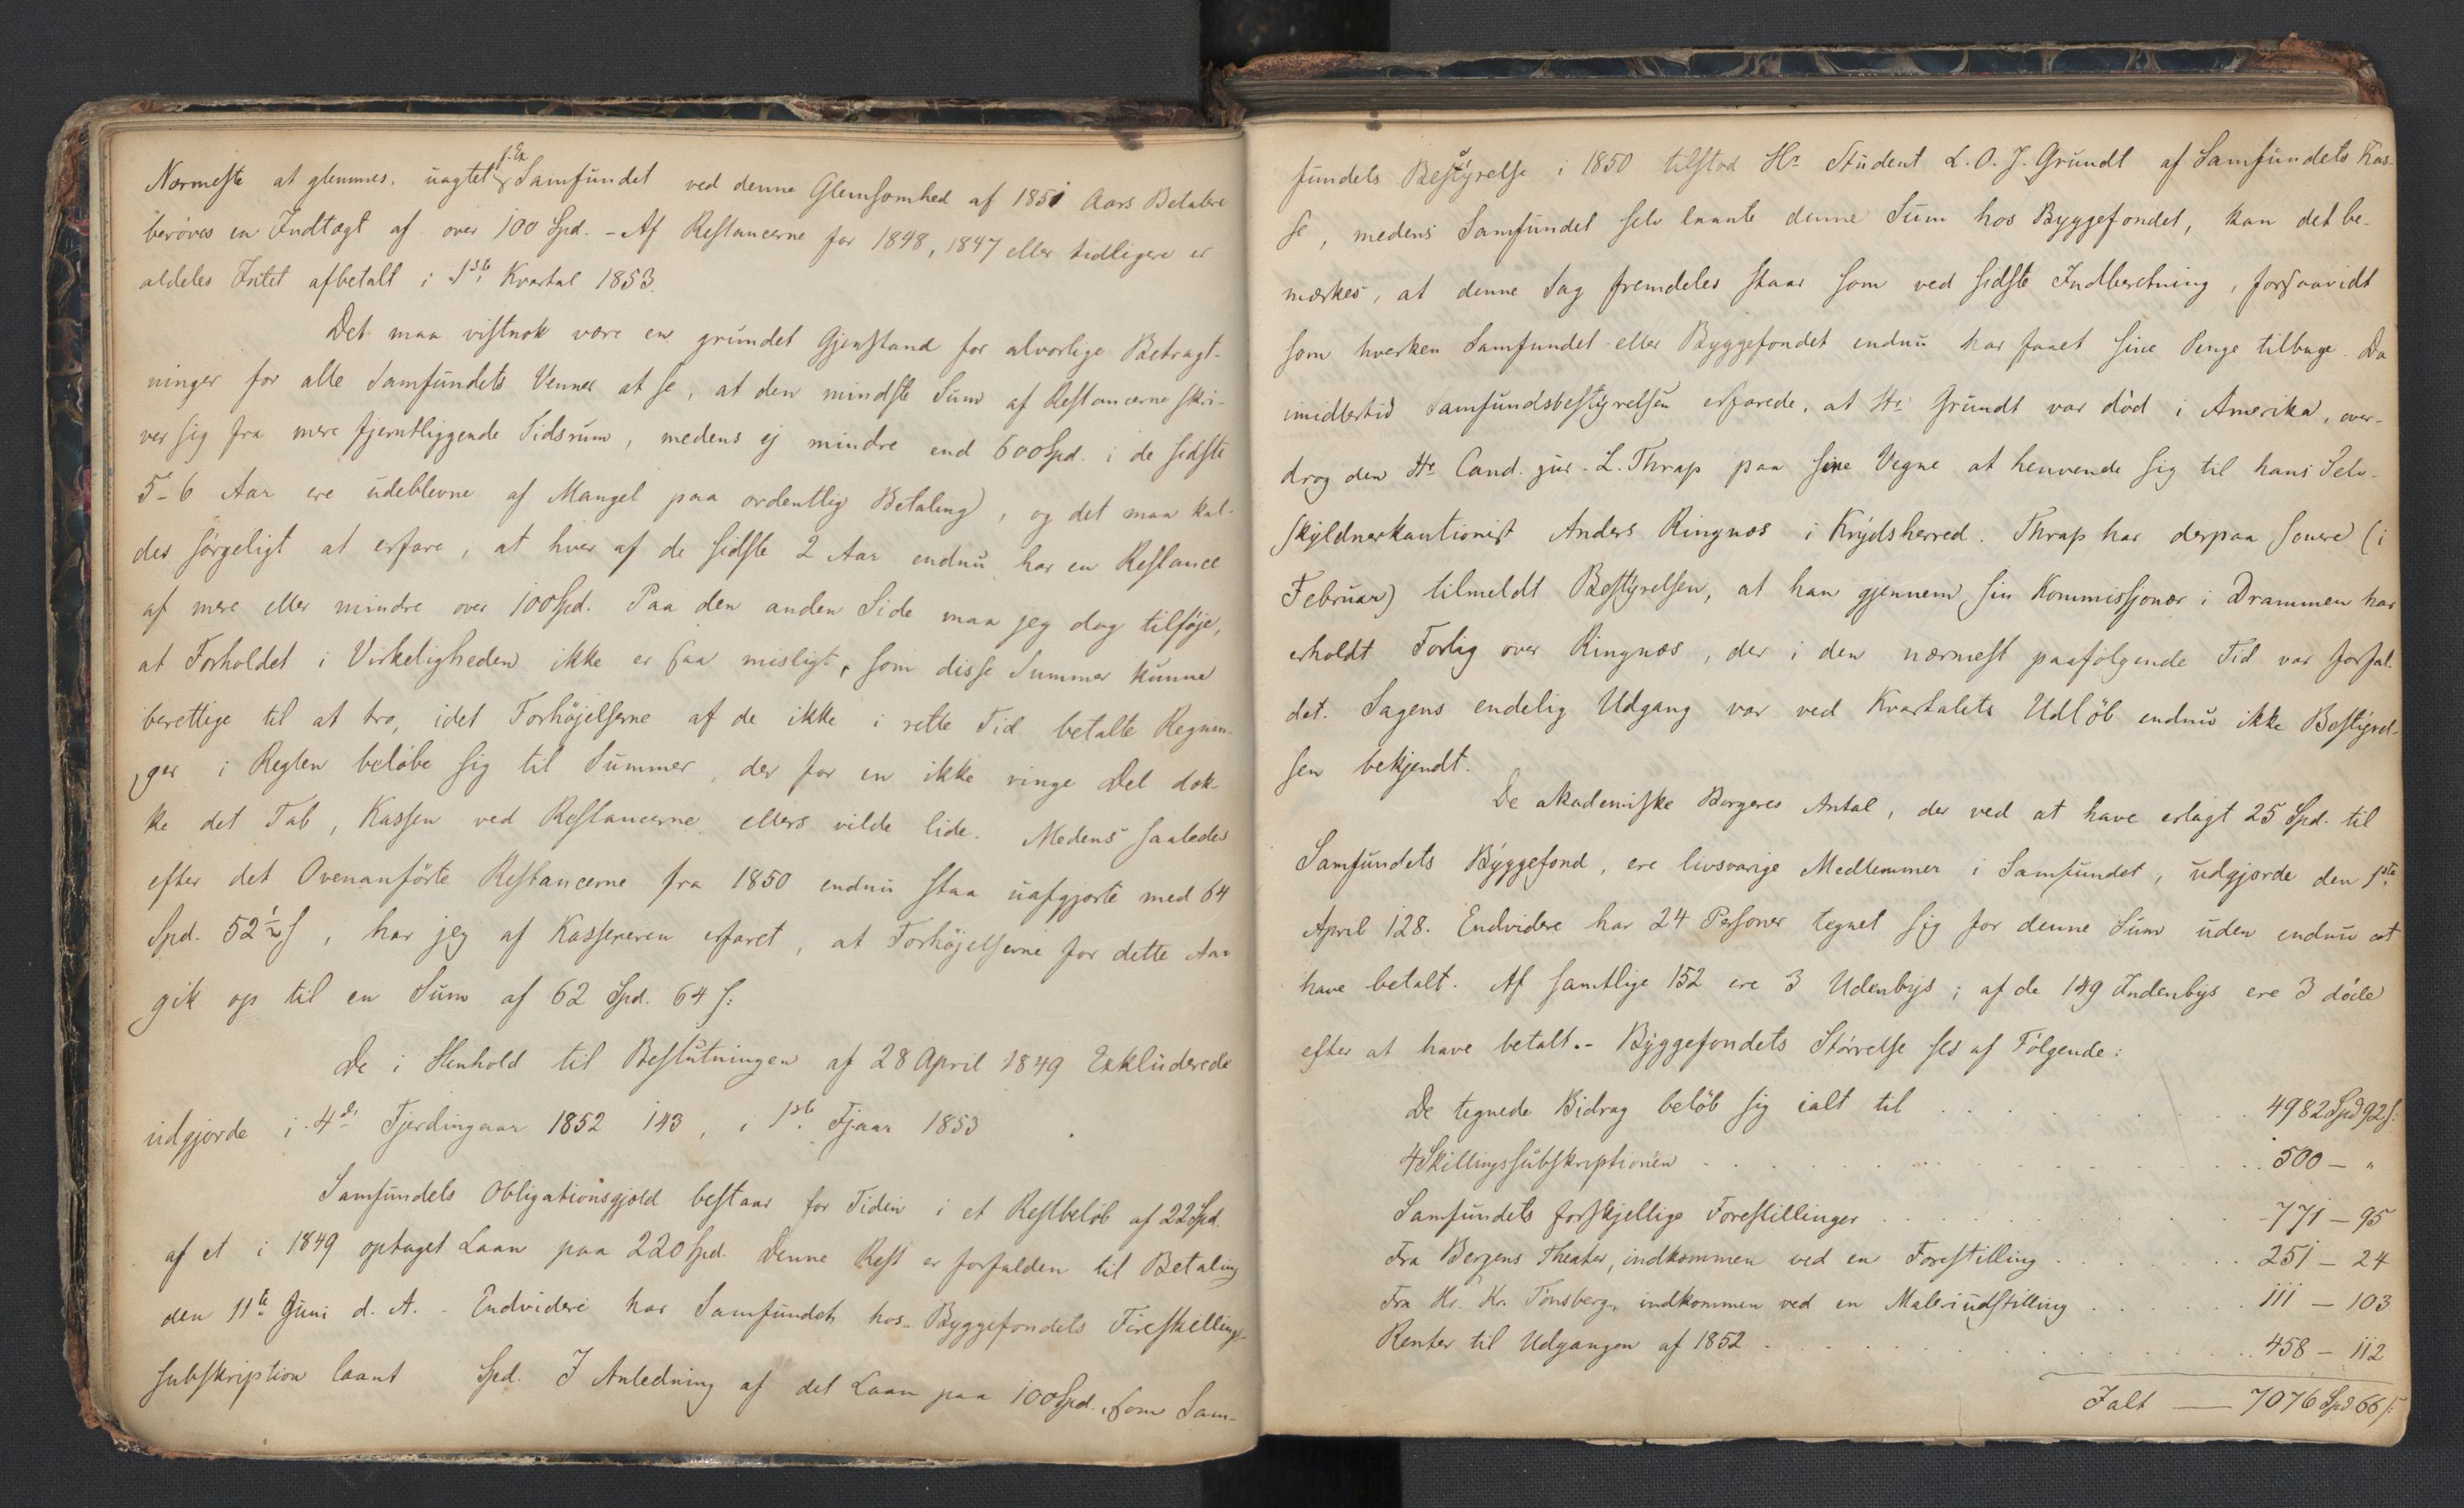 Nærmeste at glemmes, uagtet f. Ex Samfundet ved denne Glemsomhed af 1851 Aars Betalere
berøves en Indtægt af over 100 Spd. - Af Restancerne for 1848, 1847 eller tidligere er
aldeles Intet afbetalt i 1ste Kvartal 1853.
Det maa vistnok være en grundet Gjenstand for alvorlige Betragt-
ninger for alle Samfundets Venner at se, at den mindste Sum af Restancerne skri-
ver sig fra mere fjerntliggende Tidsrum, medens ej mindre end 600 Spd. i de sidste
5-6 Aar ere udeblevne af Mangel paa ordentlig Betaling, og det maa kal-
des sørgeligt at erfare, at hver af de sidste 2 Aar endnu har en Restance
af mere eller mindre over 100 Spd. Paa den anden Side maa jeg dog tilføje,
at Forholdet i Virkeligheden ikke er saa misligt, som disse Summer kunne
berettige til at tro, idet Forhøjelserne af de ikke i rette Tid betalte Regnin-
ger i Reglen beløbe sig til Summer, der for en ikke ringe Del dæk-
ke det Tab, Kassen ved Restancerne ellers vilde lide. Medens saaledes
efter det Ovenanførte Restancerne fra 1850 endnu staa uafgjorte med 64
Spd. 52½ s, har jeg af Kassereren erfaret, at Forhøjelserne for dette Aar
gik op til en Sum af 62 Spd. 64 s:
De i Henhold til Beslutningen af 28 April 1849 Exkluderede
udgjorde i 4de Fjerdingaar 1852 143, i 1ste Fjaar 1853 .
Samfundets Obligationsgjæld bestaar for Tiden i et Restbeløb af 22 Spd.
af et i 1849 optaget Laan paa 220 Spd. Denne Rest er forfalden til Betaling
den 11te Juni d. A. - Endvidere har Samfundet hos Byggefondets Fireskillings-
subskription laant Spd. I Anledning af det Laan paa 100 Spd., som Sam-
fundets Bestyrelse i 1850 tilstod Hr Student L. O. J. Grundt af Samfundets Kas-
se, medens Samfundet selv laante denne Sum hos Byggefondet, kan det be-
mærkes, at denne Sag fremdeles staar som ved sidste Indberetning, forsaavidt
som hverken Samfundet eller Byggefondet endnu har faaet sine Penge tilbage. Da
imidlertid Samfundsbestyrelsen erfarede, at Hr Grundt var død i Amerika, over-
drog den Hr Cand. jur. L. Thrap paa sine Vegne at henvende sig til hans Selv-
skyldnerkautionist Anders Ringnæs i Krydsherred. Thrap har derpaa senere (i
Februar) tilmeldt Bestyrelsen, at han gjennem sin Kommissionær i Drammen har
erholdt Forlig over Ringnæs, der i den nærmest paafølgende Tid var forfal-
det. Sagens endelig Udgang var ved Kvartalets Udløb endnu ikke Bestyrel-
sen bekjendt.
De akademiske Borgeres Antal, der ved at have erlagt 25 Spd. til
Samfundets Byggefond, ere livsvarige Medlemmer i Samfundet, udgjorde den 1ste
April 128. Endvidere har 24 Personer tegnet sig for denne Sum uden endnu at
have betalt. Af samtlige 152 ere 3 Udenbys; af de 149 Indenbys ere 3 døde
efter at have betalt. - Byggefondets Størrelse ses af Følgende:
De tegnede Bidrag beløb sig ialt til . . . . . . 4982 Spd 92 s:
4 Skillingssubskriptionen . . . . . . 500 - "
Samfundets forskjellige Forestillinger . . . . . . 771 - 95
Fra Bergens Theater, indkommen ved en Forestilling . . . . . . 251 - 24
Fra Hr. Kr. Tønsberg, indkommen ved en Maleriudstilling . . . . . . 111 - 103
Renter til Udgangen af 1852 . . . . . . 458 - 112
Ialt — 7076 Spd 66 s: